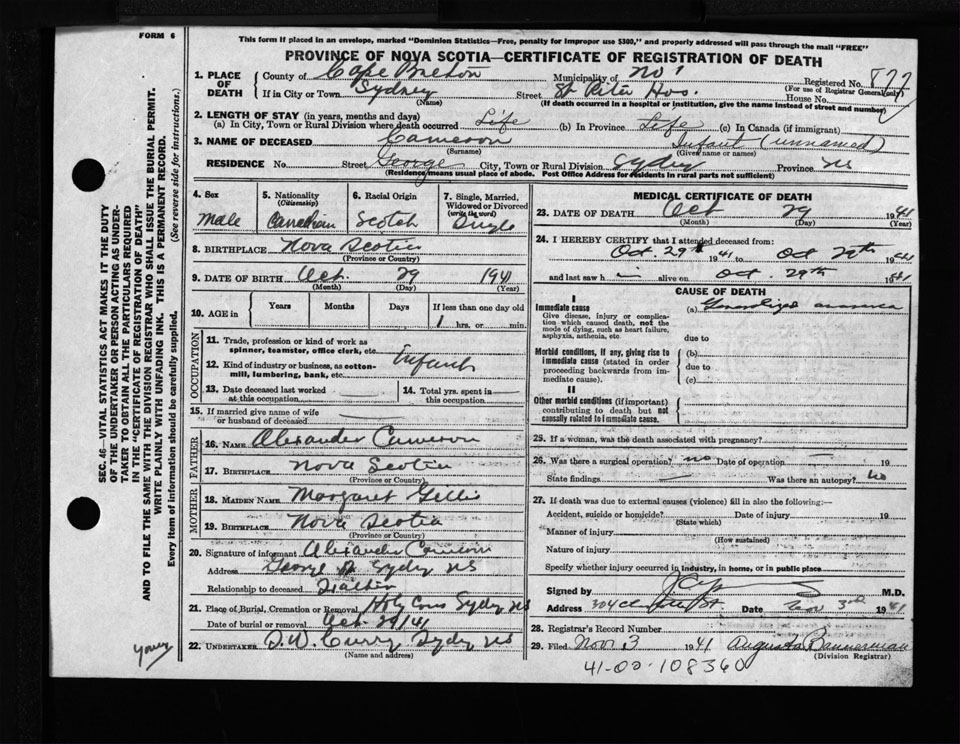 FORM 6
This form if placed in an envelope, marked "Dominion Statistics—Free, penalty for improper use $300," and properly addressed will pass through the mail "FREE"
PROVINCE OF NOVA SCOTIA—CERTIFICATE OF REGISTRATION OF DEATH
1. PLACE OF DEATH
County of Cape Breton Municipality of No 1 Registered No. 877
(For use of Registrar General only)
If in City or Town Sydney Street St Rita Hos. House No.
(Name) (If death occurred in a hospital or institution, give the name instead of street and number)
2. LENGTH OF STAY (in years, months and days)
(a) In City, Town or Rural Division where death occurred Life (b) In Province Life (c) In Canada (if immigrant)
3. NAME OF DECEASED Cameron Infant (unnamed)
(Surname) (Given name or names)
RESIDENCE No. Street George City, Town or Rural Division Sydney Province NS
(Residence means usual place of abode. Post Office Address for residents in rural parts not sufficient)
4. Sex Male
5. Nationality (Citizenship) Canadian
6. Racial Origin Scotch
7. Single, Married, Widowed or Divorced (write the word) Single
8. BIRTHPLACE Nova Scotia
(Province or Country)
9. DATE OF BIRTH Oct. 29 1941
(Month) (Day) (Year)
10. AGE in Years Months Days If less than one day old
1 hrs. or min.
OCCUPATION
11. Trade, profession or kind of work as spinner, teamster, office clerk, etc. Infant
12. Kind of industry or business, as cotton-mill, lumbering, bank, etc.
13. Date deceased last worked at this occupation
14. Total yrs. spent in this occupation
15. If married give name of wife or husband of deceased
FATHER
16. NAME Alexander Cameron
17. BIRTHPLACE Nova Scotia
(Province or Country)
MOTHER
18. MAIDEN NAME Margaret Gillis
19. BIRTHPLACE Nova Scotia
(Province or Country)
20. Signature of informant Alexander Cameron
Address George St Sydney NS
Relationship to deceased Father
21. Place of Burial, Cremation or Removal Holy Cross Sydney NS
Date of burial or removal Oct 29/41
22. UNDERTAKER D. W. Curry Sydney NS
(Name and address)
MEDICAL CERTIFICATE OF DEATH
23. DATE OF DEATH Oct 29 1941
(Month) (Day) (Year)
24. I HEREBY CERTIFY that I attended deceased from:
Oct. 29th 1941 to Oct 29th 1941
and last saw h im alive on Oct. 29th 1941
CAUSE OF DEATH
I
Immediate cause
Give disease, injury or complication which caused death, not the mode of dying, such as heart failure, asphyxia, asthenia, etc.
(a) Generalized
due to
Morbid conditions, if any, giving rise to immediate cause (stated in order proceeding backwards from immediate cause).
(b)
due to
(c)
II
Other morbid conditions (if important) contributing to death but not causally related to immediate cause.
25. If a woman, was the death associated with pregnancy?
26. Was there a surgical operation? no Date of operation 19
State findings Was there an autopsy? No
27. If death was due to external causes (violence) fill in also the following:—
Accident, suicide or homicide? Date of injury 19
(State which)
Manner of injury
(How sustained)
Nature of injury
Specify whether injury occurred in industry, in home, or in public place
Signed by M.D.
Address Date Nov 3rd 1941
28. Registrar's Record Number
29. Filed Nov. 3 1941 Augusta Bannerman
(Division Registrar)
41-00-108360
SEC. 46—VITAL STATISTICS ACT MAKES IT THE DUTY
OF THE UNDERTAKER OR PERSON ACTING AS UNDER-
TAKER TO OBTAIN ALL THE PARTICULARS REQUIRED
IN THE "CERTIFICATE OF REGISTRATION OF DEATH"
AND TO FILE THE SAME WITH THE DIVISION REGISTRAR WHO SHALL ISSUE THE BURIAL PERMIT.
WRITE PLAINLY WITH UNFADING INK. THIS IS A PERMANENT RECORD.
Every item of information should be carefully supplied. (See reverse side for instructions.)